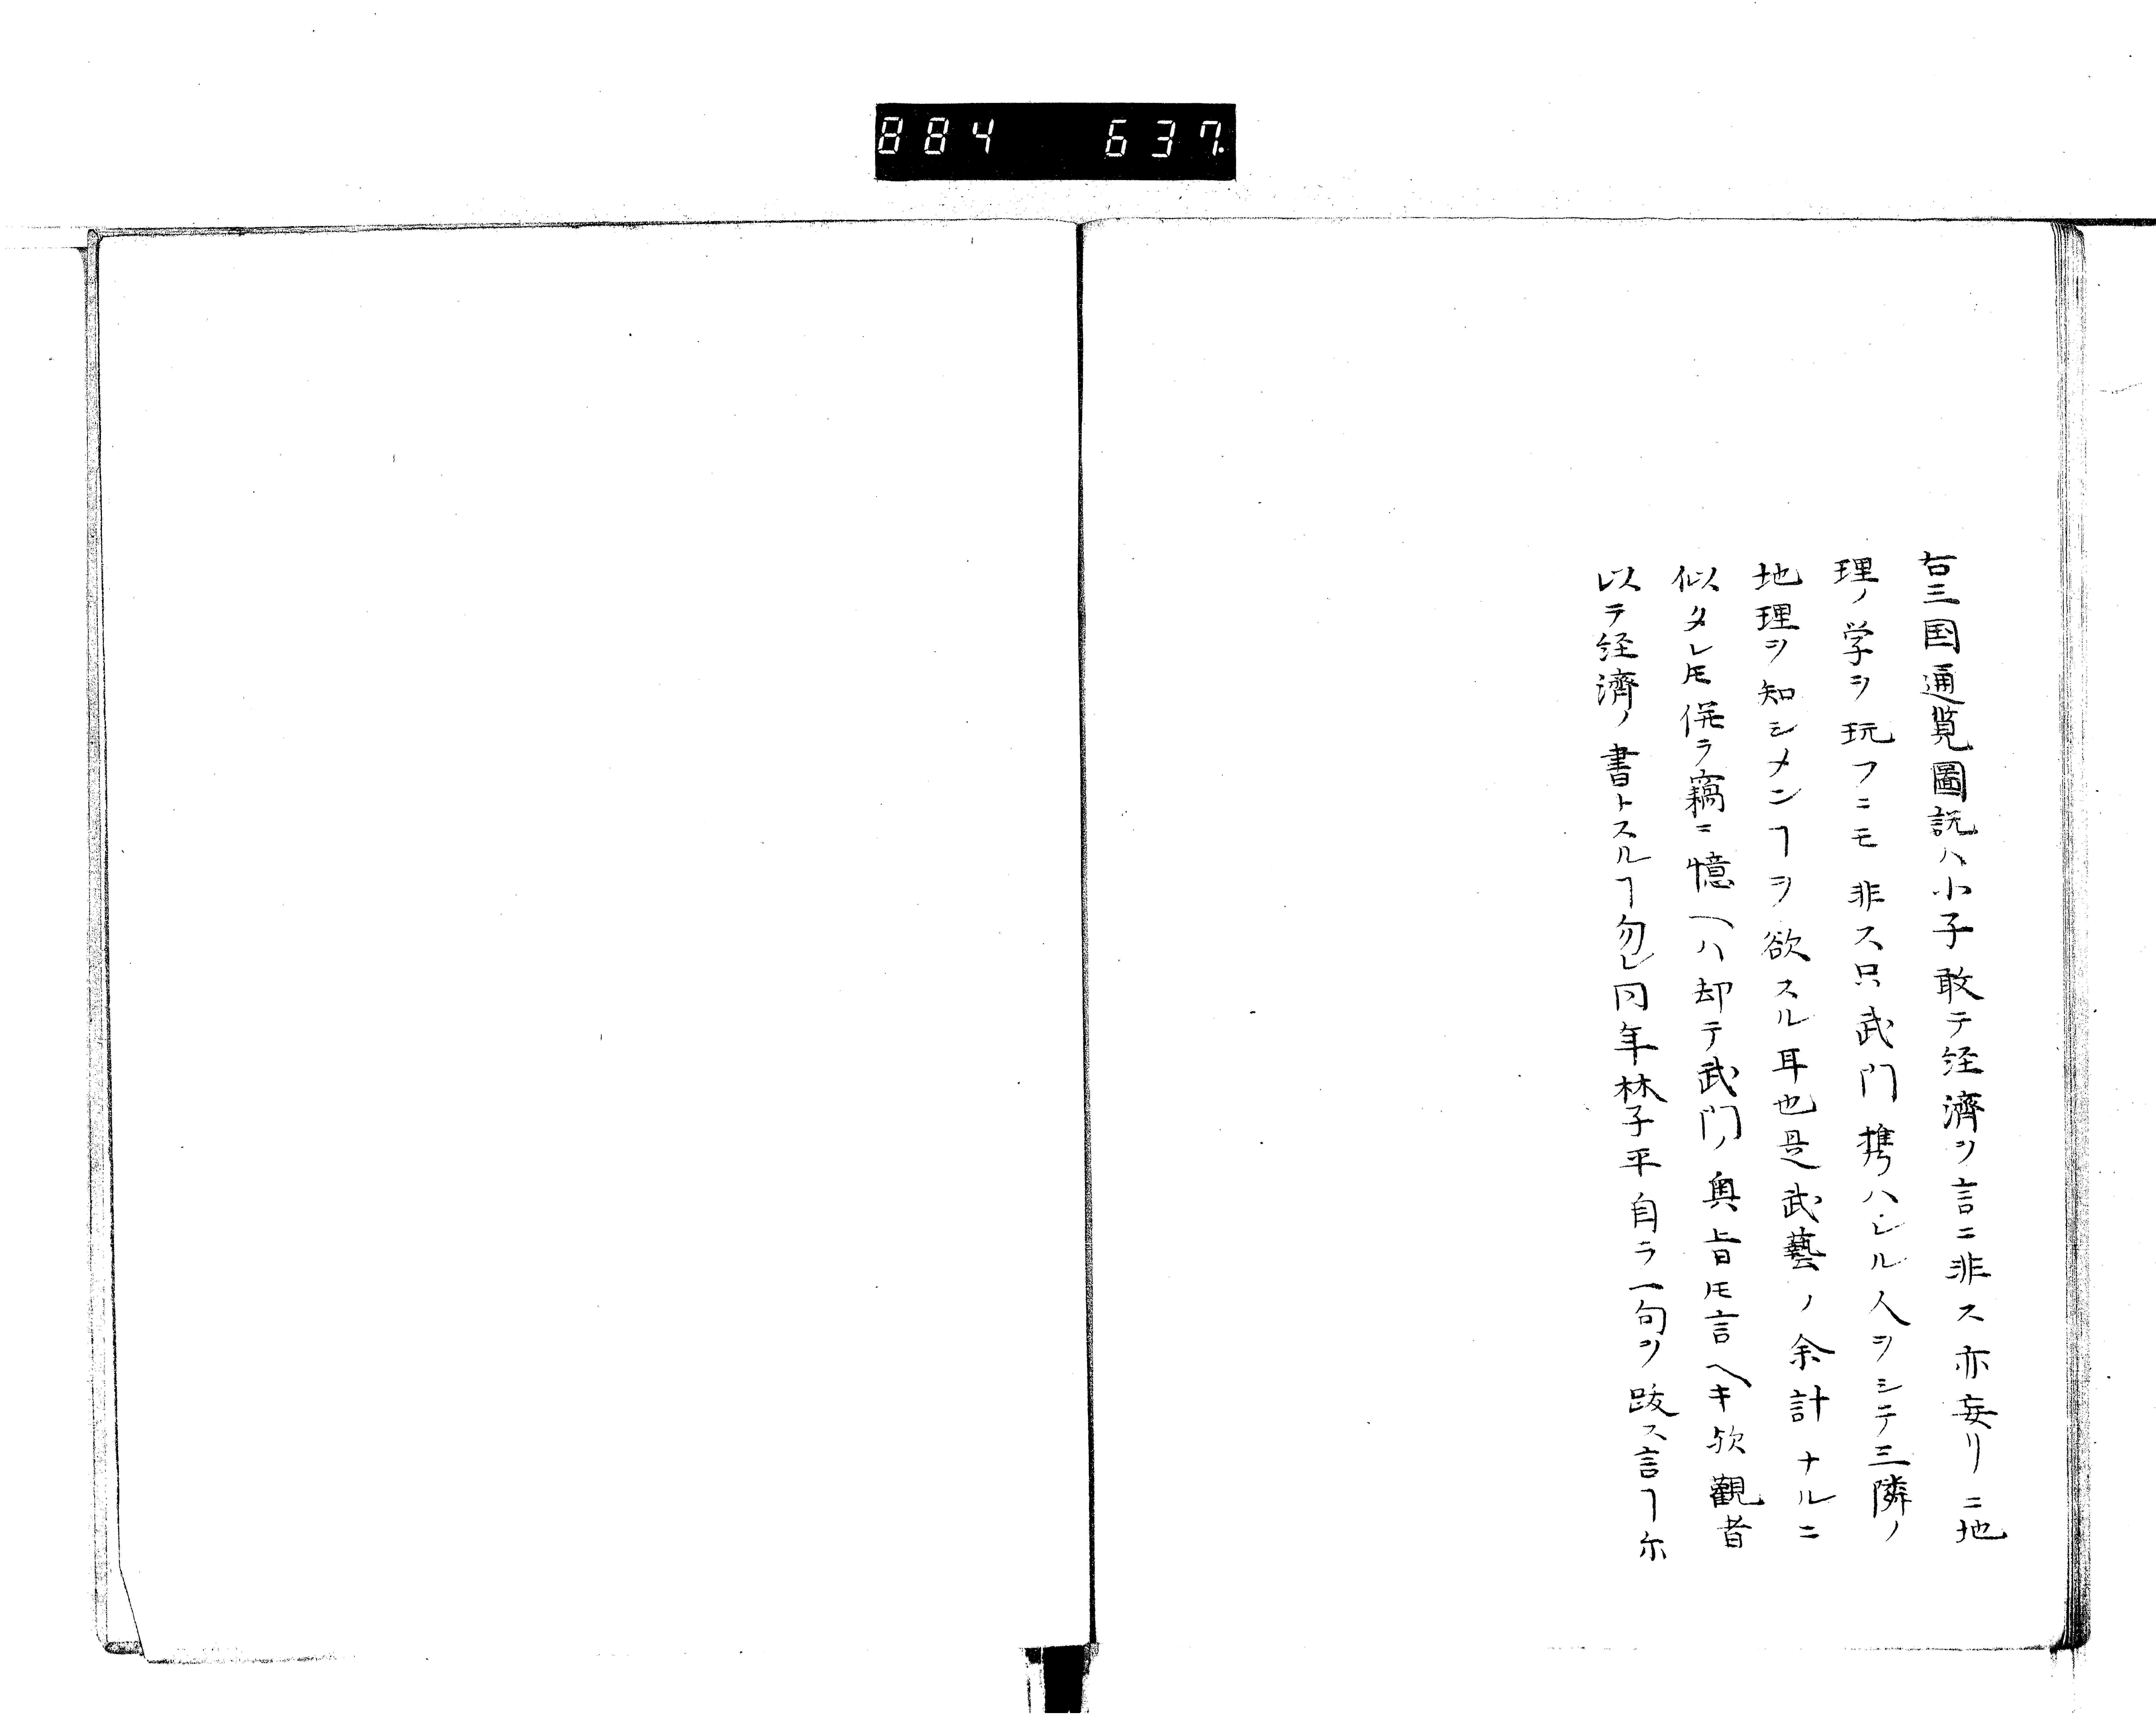 884 637.
右三国通覧圖説ハ小子敢テ経濟ヲ言ニ非ス亦妄リニ地
理ノ学ヲ玩フニモ非ス只武門携ハレル人ヲシテ三隣ノ
地理ヲ知シメンヿヲ欲スル耳也是武藝ノ余計ナルニ
似タレ𪜈併ラ竊ニ憶ヘハ却テ武門ノ奥旨𪜈言ヘキ欤觀者
以テ経濟ノ書トスルヿ勿レ同年林子平自ラ一句ヲ跋ス言ヿ尓